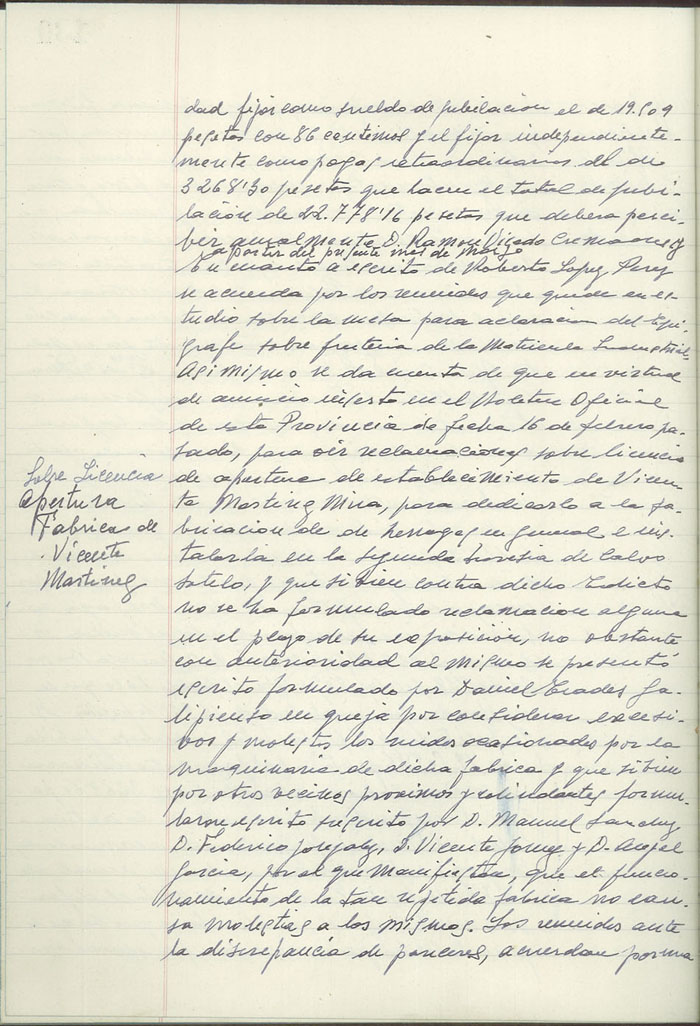 dad fijar como sueldo de jubilacion el de 19.509
pesetas con 86 centimos y el fijar independiente-
mente como pagas extraordinarias de
3268'30 pesetas que hacen el total de jubi-
lación de 22.778'16 pesetas que debera perci-
bir anualmente D. Ramon Vicedo Cremades y
a partir del presente mes de Marzo
En cuanto a escrito de Roberto Lopez Perez
se acuerda por los reunidos que quede en es-
tudio sobre la mesa para aclaracion del Epi-
grafe sobre fruteria de la Matricula Industrial.
Asimismo se da cuenta de que en virtud
de anuncio inserto en el Boletin Oficial
de esta Provincia de fecha 16 de febrero pa-
sado, para oir reclamaciones sobre licencia
de apertura de establecimiento de Vicen-
te Martinez Mira, para dedicarlo a la fa-
bricacion de de herrajes en general e ins-
talarla en la segunda travesia de Calvo
Sotelo, y que si bien contra dicho Edicto
no se ha formulado reclamacion alguna
en el plazo de su exposición, no obstante
con anterioridad al mismo se presentó
escrito formulado por Daniel Erades Ga-
lipienso en queja por considerar excesi-
vos y molestos los ruidos ocasionados por la
maquinaria de dicha fabrica y que si bien
por otros vecinos proximos y colindantes formu-
laron escrito suscrito por D. Manuel Sanchez
D. Federico Gonzalez, D. Vicente Jover y D. Angel
Garcia, por el que manifiestan, que el funcio-
namiento de la tan repetida fabrica no cau-
sa molestias a los mismos. Los reunidos ante
la discrepancia de pareceres, acuerdan por una
Sobre Licencia
Apertura
Fabricas de
Vicente
Martinez